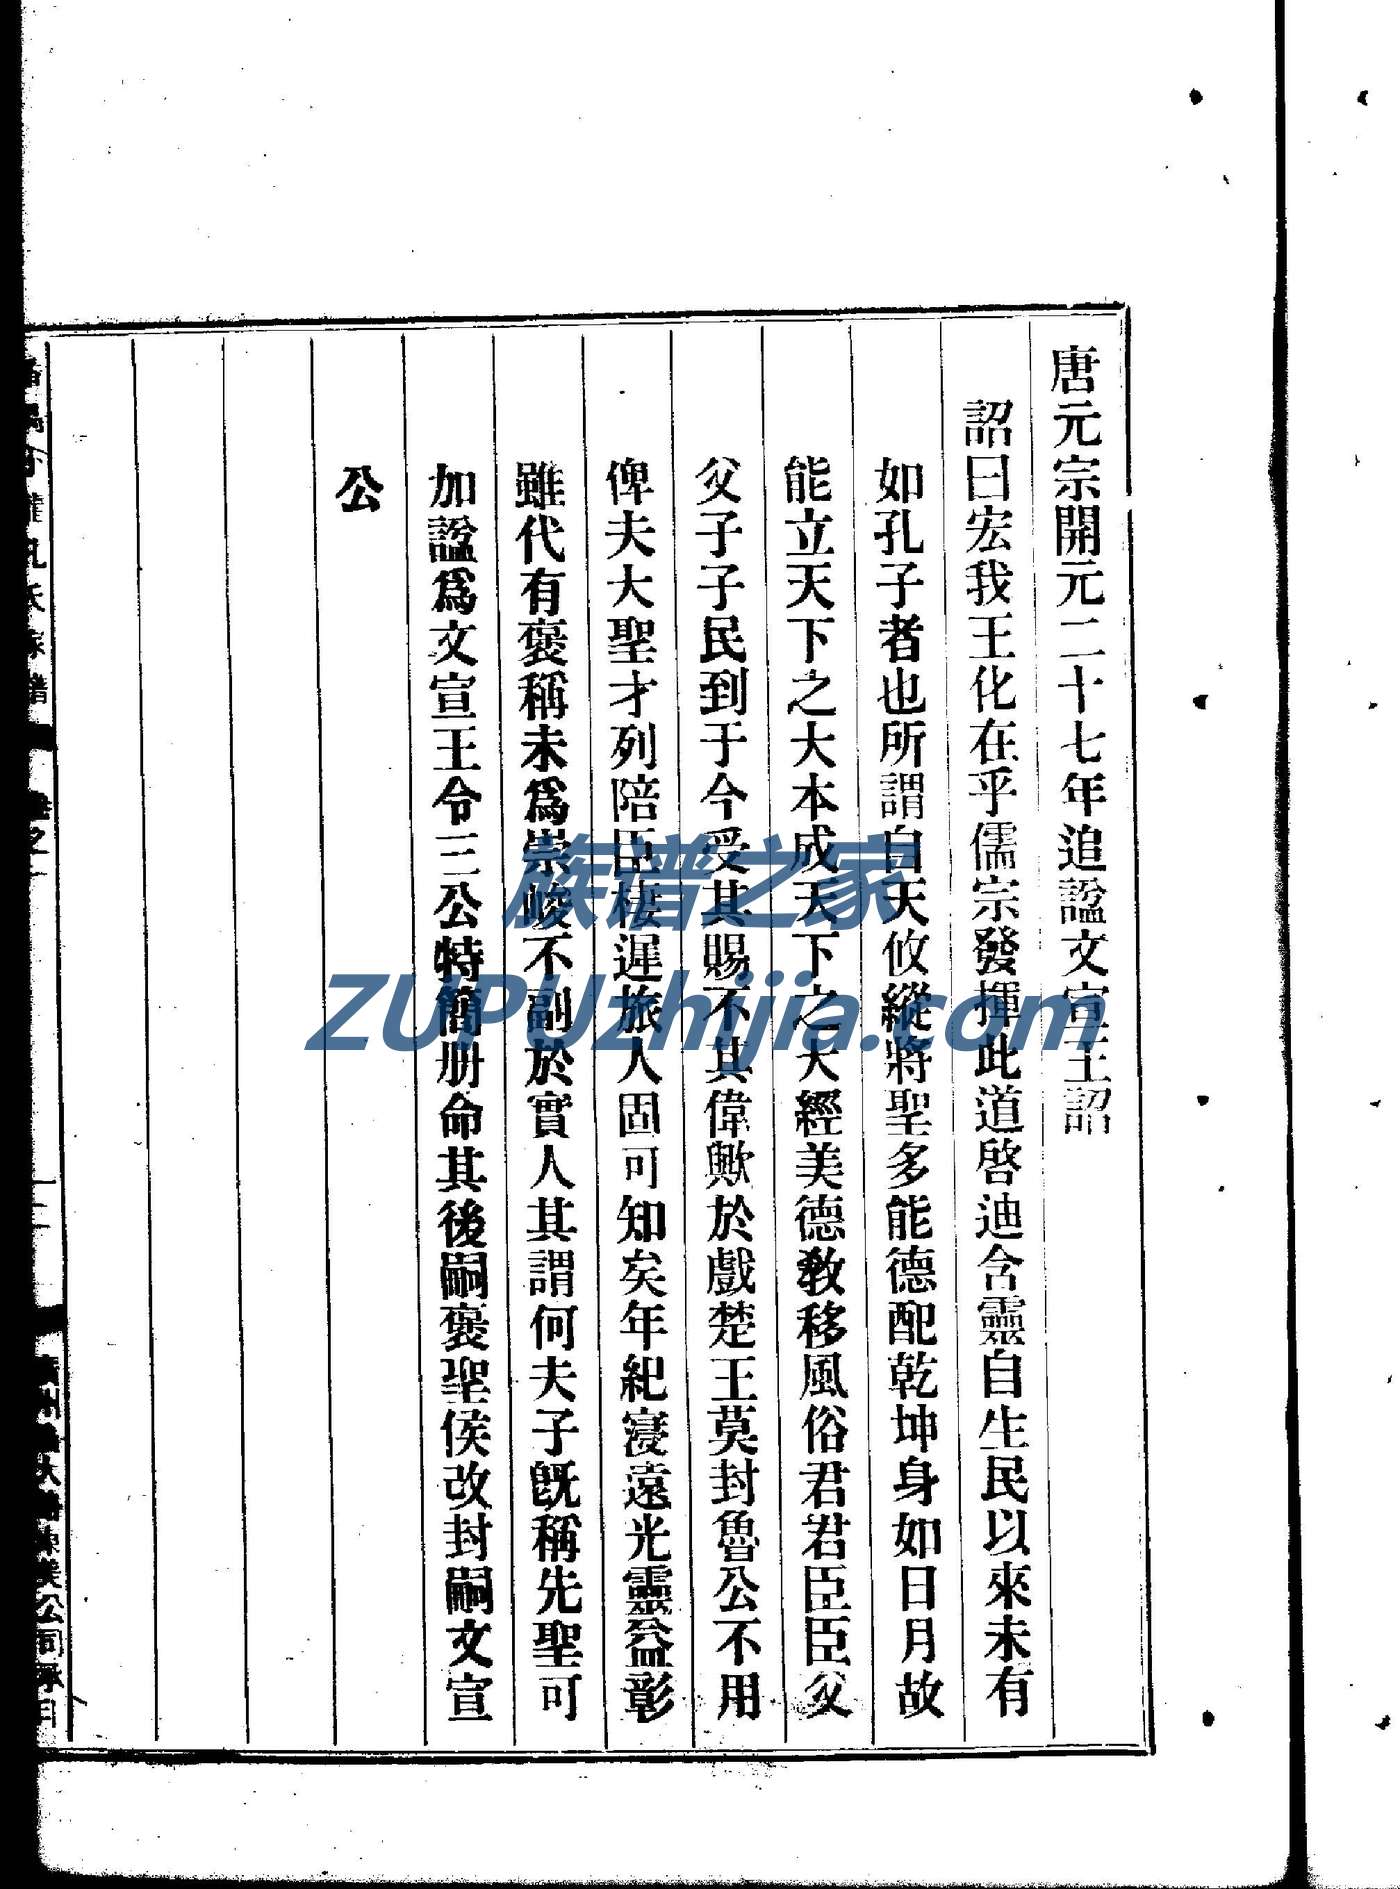 唐元宗開元二十七年追諡文宣王詔
詔曰宏我王化在乎儒宗發揮此道啓迪含靈自生民以來未有
如孔子者也所謂自天攸縱將聖多能德配乾坤身如日月故
能立天下之大本成天下之大經美德教移風俗君君臣臣父
父子子民到于今受其賜不其偉歟於戲楚王莫封魯公不用
俾夫大聖才列陪臣棲遲旅人固可知矣年紀寖遠光靈益彰
雖代有褒稱未爲崇峻不副於實人其謂何夫子既稱先聖可
加諡爲文宣王令三公特簡册命其後嗣褒聖侯改封嗣文宣
公
族谱之家
ZUPUzhijia.com